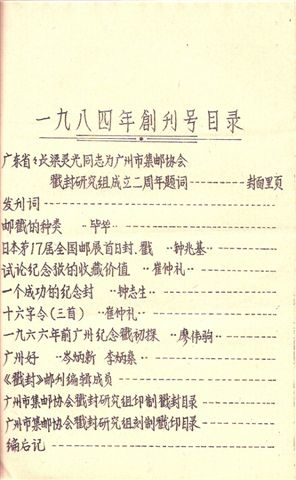 一九八四年創刊号目录
广东省长梁灵光同志为广州市集邮协会
戳封研究组成立二周年题词----------封面里页
发刊词----------
邮戳的种类 ··毕华··----------
日本第17届全国邮展首日封、戳 ··钟兆基··----------
试论纪念戳的收藏价值 ··崔仲礼··----------
一个成功的纪念封 ··钟志生··----------
十六字令(三首) ··崔仲礼··----------
一九六六年前广州纪念戳初探 ··廖伟驹··----------
广州好 ··岑炳新 李炳燊··----------
《戳封》邮刊编辑成员----------
广州市集邮协会戳封研究组印制戳封目录----------
广州市集邮协会戳封研究组刻制戳印目录----------
编后记----------